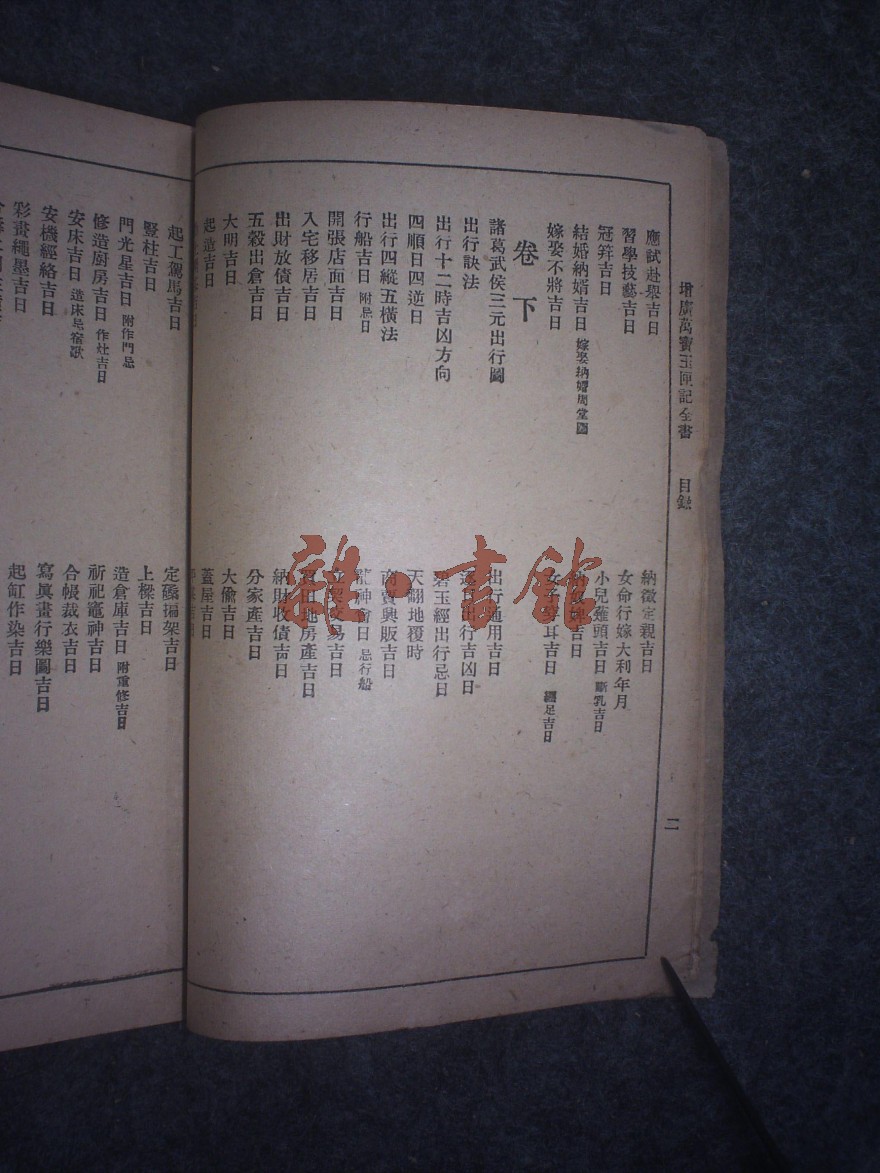 增廣萬寶玉匣記全書 目錄
二
應試赴舉吉日
納徵定親吉日
習學技藝吉日
女命行嫁大利年月
冠笄吉日
小兒薙頭吉日 斷乳吉日
結婚納婿吉日 嫁娶納婿周堂圖
納奴婢吉日
嫁娶不將吉日
女子穿耳吉日 纏足吉日
卷下
諸葛武侯三元出行圖
出行通用吉日
出行訣法
逐日出行吉凶日
出行十二時吉凶方向
碧玉經出行忌日
四順日四逆日
天翻地覆時
出行四縱五橫法
商賈興販吉日
行船吉日 附忌日
龍神會日 忌行船
開張店面吉日
立契交易吉日
入宅移居吉日
買田地房產吉日
出財放債吉日
納財收債吉日
五穀出倉吉日
分家產吉日
大明吉日
大偷吉日
起造吉日
蓋屋吉日
起工駕馬吉日
定磉搧架吉日
豎柱吉日
上樑吉日
門光星吉日 附作門忌
造倉庫吉日 附重修吉日
修造廚房吉日 作灶吉日
祈祀竈神吉日
安床吉日 造床忌宿歌
合帳裁衣吉日
安機經絡吉日
寫眞畫行樂圖吉日
彩畫繩墨吉日
起缸作染吉日
龍·書館